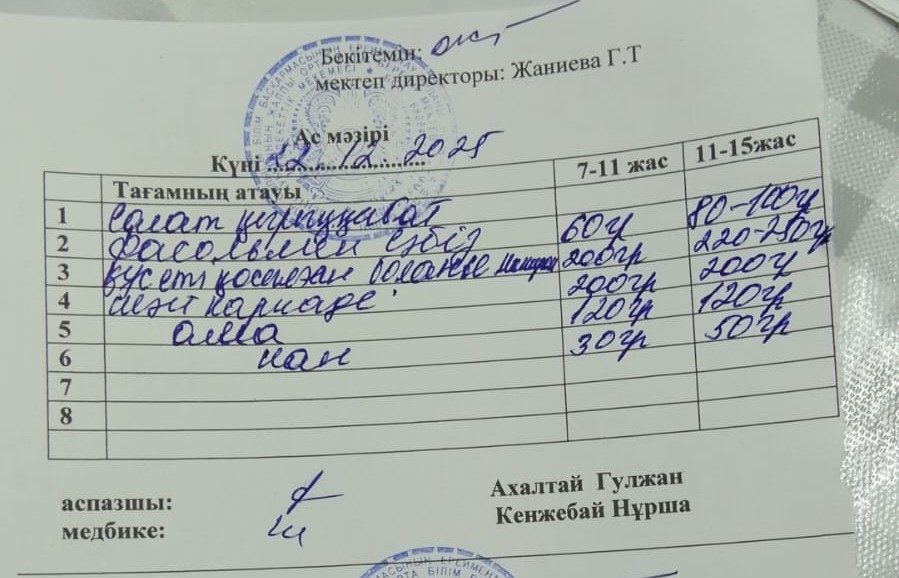 Бекітемін:
мектеп директоры: Жаниева Г.Т
Ас мәзірі
Күні 22.12.2025
Тағамның атауы 7-11 жас 11-15жас
1 Салат 60гр 80-100гр
2 фасольмен 200гр 220-250гр
3 құс еті қосылған 200гр 200гр
4 каркаде 120гр 120гр
5 алма 30гр 50гр
6 нан
7
8
аспазшы: Ахалтай Гулжан
медбике: Кенжебай Нұрша